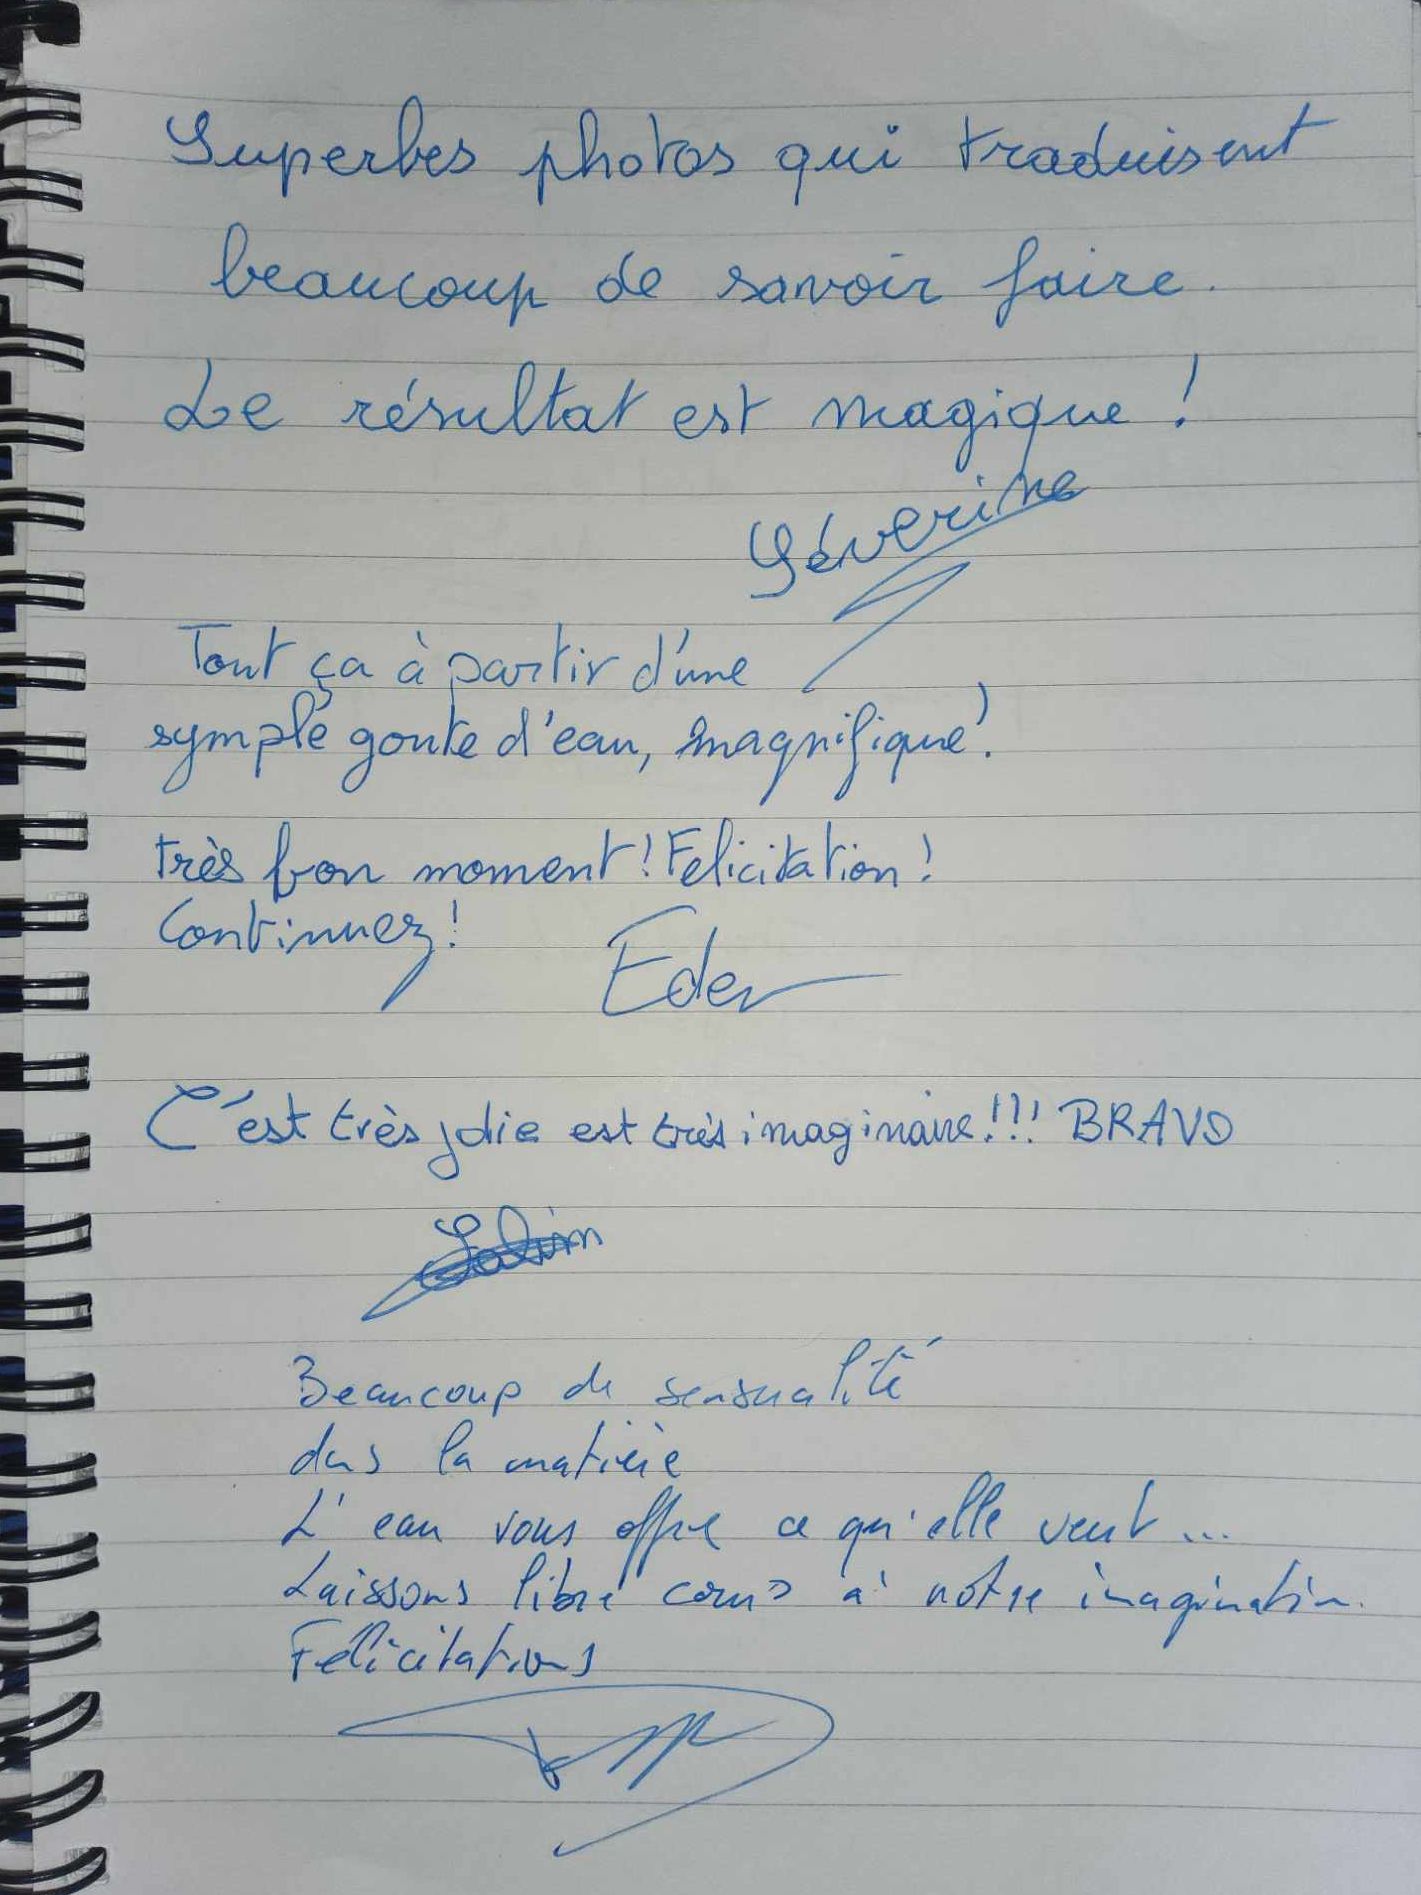 Superbes photos qui traduisent
beaucoup de savoir faire.
Le résultat est magique !
Séverine
Tout ça à partir d'une
symple goute d'eau, magnifique !
très bon moment ! Felicitation !
Continuez !
Eder
C'est très jolie est très imaginaire !!! BRAVO
Beaucoup de sensualité
dans la matière
L'eau vous offre ce qu'elle veut ...
Laissons libre cours à notre imagination.
Félicitations